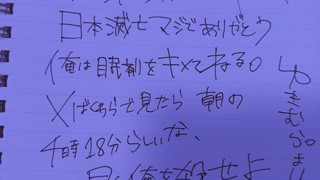 日本滅亡マジでありがとう
俺は眠剤をキメてねる。
Xばくあらで見たら 朝の
4時18分らしいな、
俺を殺せよ
しゅきむら。より